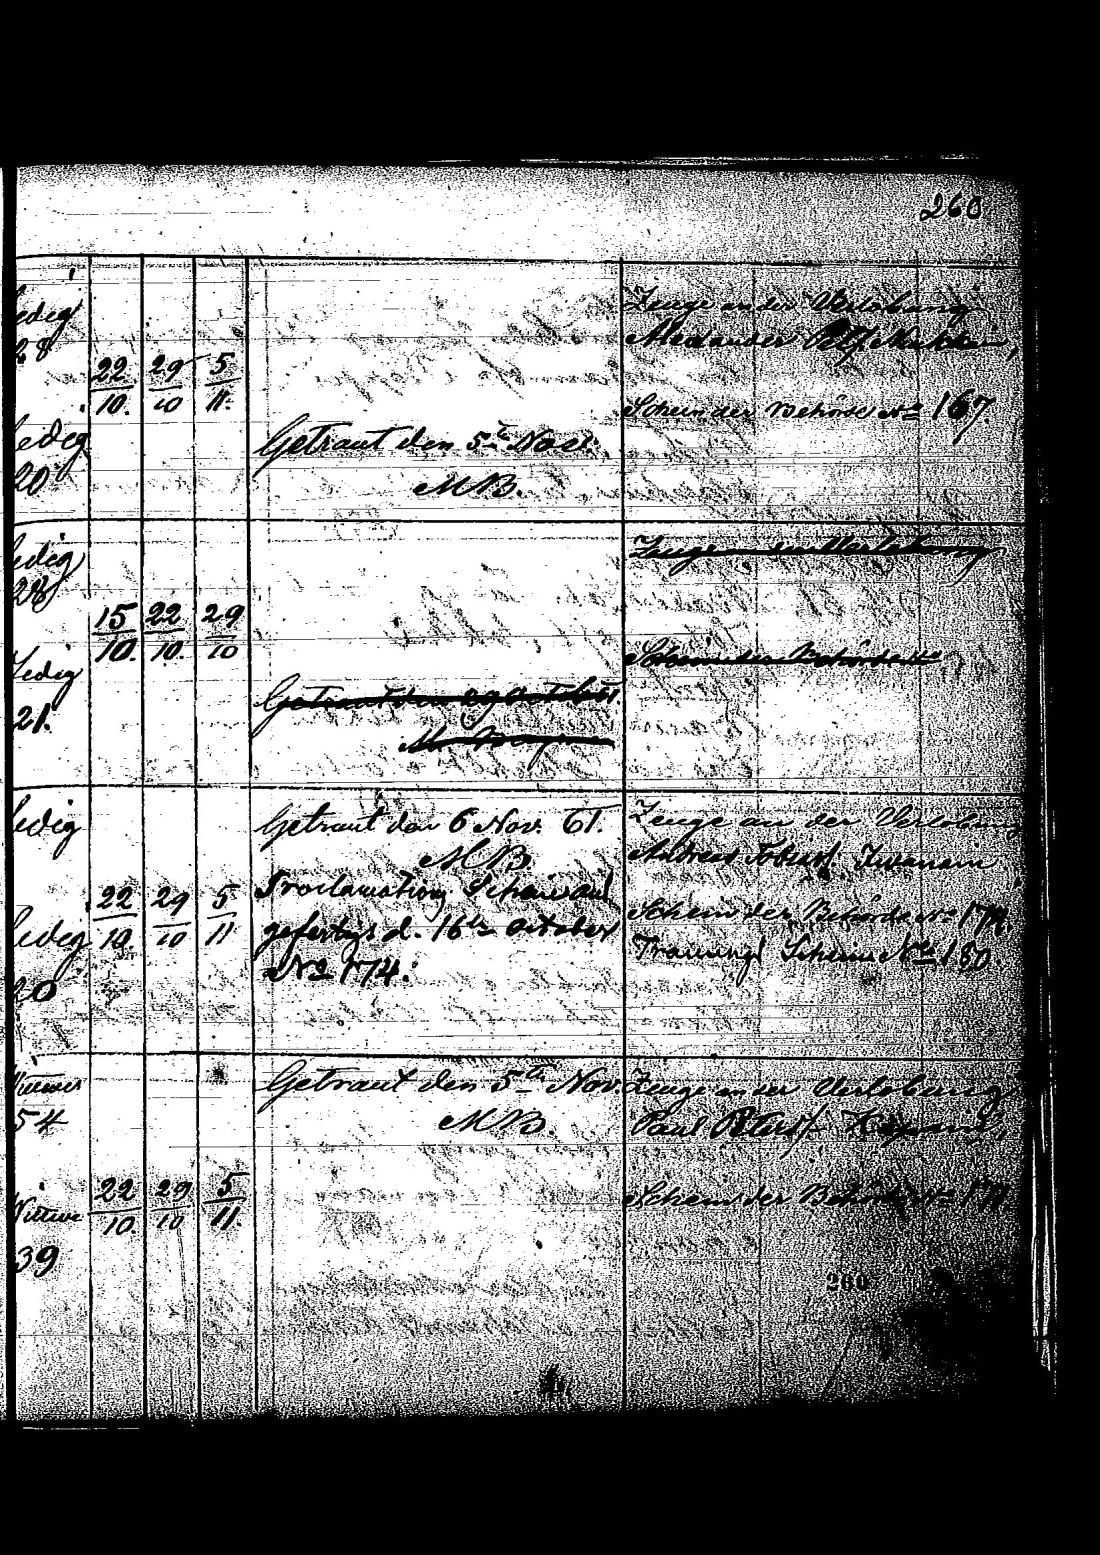 260
ledig
28
22/10. 29/10 5/11.
ledig
20
Getraut den 5te Nov.
MB.
Zeuge an der Verlobung
Alexander
Schein der Behörde No 167.
ledig
28
15/10. 22/10. 29/10
Ledig
21.
Getraut den 29 October.
Zeuge an der Verlobung
Schein der Behörde No
ledig
22/10. 29/10 5/11
ledig
20
Getraut den 6 Nov. 61.
MB
Proclamation Schein aus
gefertigt d. 16te October
No 174.
Zeuge an der Verlobung
Andreas
Schein der Behörde No
Trauungs Schein No 180.
Wittwer
54
22/10. 29/10 5/11.
Wittwe
39
Getraut den 5te Nov.
MB.
Zeuge an der Verlobung
Paul
Schein der Behörde No
260